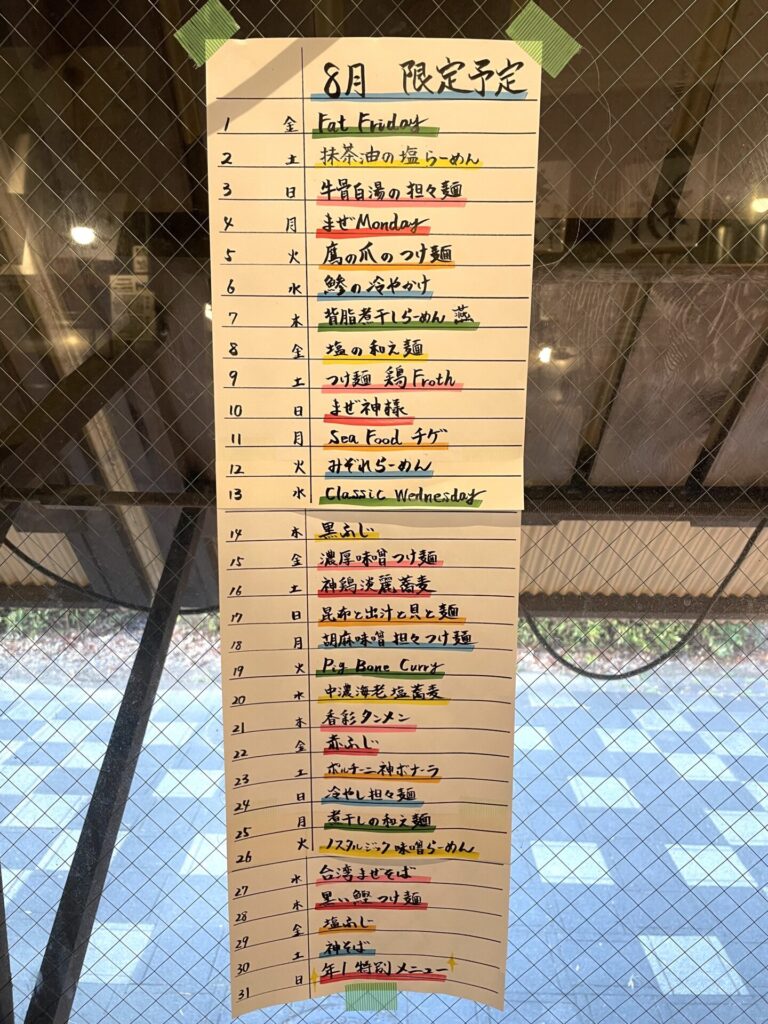 8月 限定予定
1 金 Fat Friday
2 土 抹茶油の塩らーめん
3 日 牛骨白湯の担々麺
4 月 まぜMonday
5 火 鷹の爪のつけ麺
6 水 鯵の冷やかけ
7 木 背脂煮干しらーめん 燕
8 金 塩の和え麺
9 土 つけ麺 鶏Froth
10 日 まぜ神様
11 月 Sea Food チゲ
12 火 みぞれらーめん
13 水 Classic Wednesday
14 木 黒ふじ
15 金 濃厚味噌つけ麺
16 土 神鶏淡麗蕎麦
17 日 昆布と出汁と貝と麺
18 月 胡麻味噌担々つけ麺
19 火 Pig Bone Curry
20 水 中濃海老塩蕎麦
21 木 香彩タンメン
22 金 赤ふじ
23 土 ポルチーニ神ボナーラ
24 日 冷やし担々麺
25 月 煮干しの和え麺
26 火 ノスタルジック味噌らーめん
27 水 台湾まぜそば
28 木 黒い鰹つけ麺
29 金 塩ふじ
30 土 神そば
31 日 年1特別メニュー